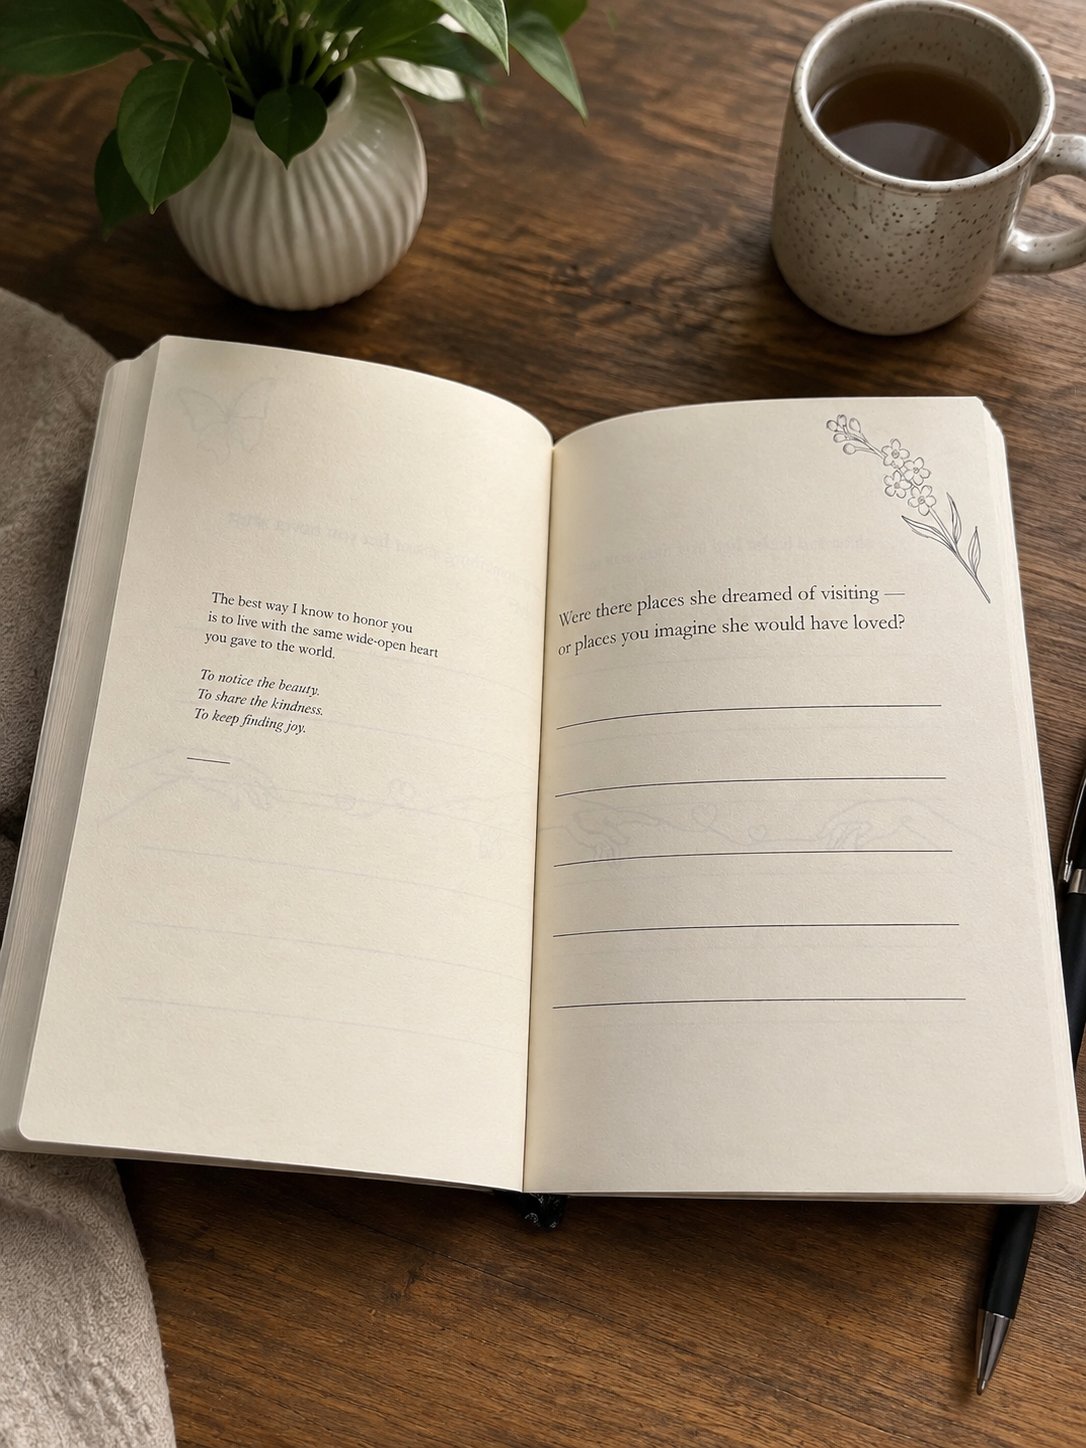 The best way I know to honor you
is to live with the same wide-open heart
you gave to the world.
To notice the beauty.
To share the kindness.
To keep finding joy.
Were there places she dreamed of visiting —
or places you imagine she would have loved?